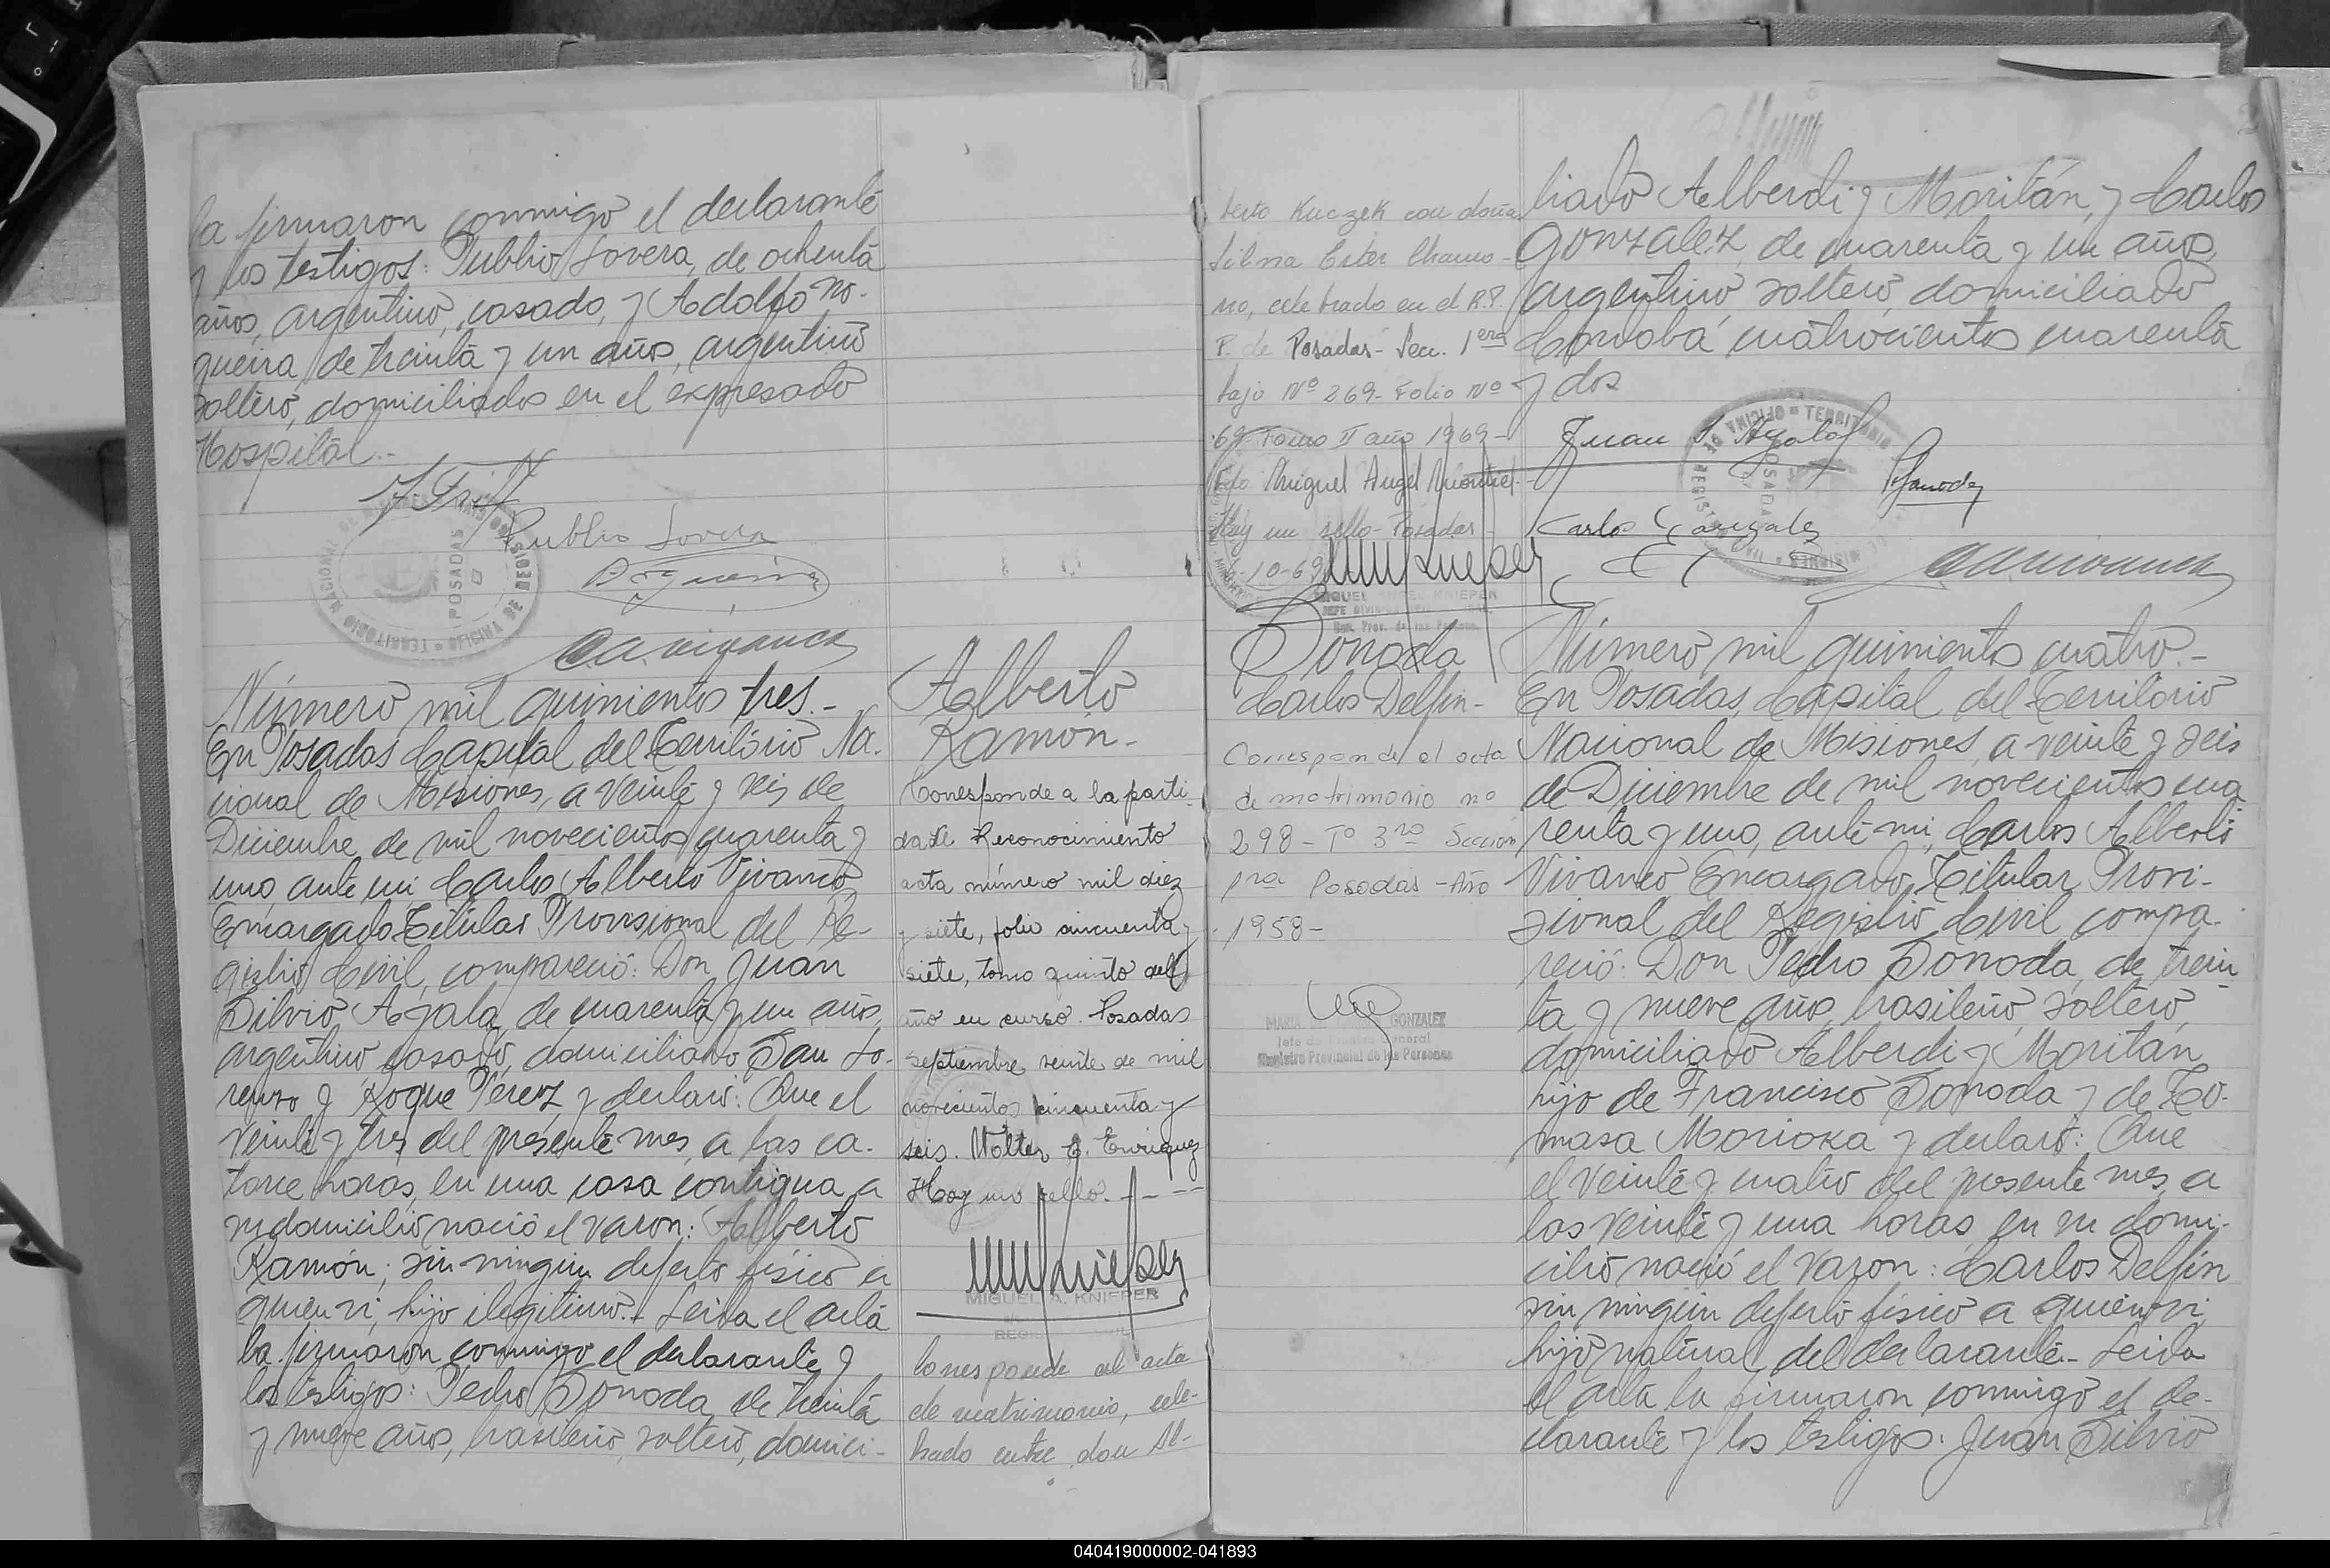 la firmaron conmigo el declarante
y los testigos: Publio Lovera, de ochenta
años, argentino, casado, y Adolfo No-
gueira, de treinta y un años, argentino
soltero, domiciliados en el expresado
Hospital.-
Publio Lovera
TERRITORIO NACIONAL DE MISIONES
OFICINA DE REGISTRO CIVIL
POSADAS
Número mil quinientos tres.-
En Posadas Capital del Territorio Na-
cional de Misiones, a veinte y seis de
Diciembre de mil novecientos cuarenta y
uno, ante mi, Carlos Alberto Vivanco,
Encargado Titular Provisional del Re-
gistro Civil, compareció: Don Juan
Silvio Ayala, de cuarenta y un años,
argentino, casado, domiciliado San Lo-
renzo y Roque Pérez, y declaró: Que el
veinte y tres del presente mes, a las ca-
torce horas, en una casa contigua a
su domicilio nació el varon: Alberto
Ramón; sin ningún defecto físico a
quien vi, hijo ilegitimo.- Leida el acta
la firmaron conmigo el declarante y
los testigos: Pedro Sonoda, de treinta
y nueve años, brasileño, soltero, domici-
Alberto
Ramón-
Corresponde a la parti-
da de Reconocimiento
acta número mil diez
y siete, folio cincuenta y
siete, tomo quinto del
año en curso. Posadas
septiembre veinte de mil
novecientos cincuenta y
seis. Walter E. Enriquez
Hay un sello.- - --
MIGUEL A. KNIEPER
Corresponde al acta
de matrimonio, cele-
brado entre don Al-
berto Kuczek con doña
Silna Ester Chamo-
no, celebrado en el R.P.
P. de Posadas- Secc. 1era
bajo Nº 269- Folio Nº
69- Tomo II año 1969-
Fdo Miguel Angel Montiel.
Hay un sello- Posadas-
-10-69
MIGUEL ANGEL KNIEPER
Sonoda
Carlos Delfin-
Corresponde al acta
de matrimonio nº
298- Tº 3ro Sección
1ra Posadas -Año
1958-
GONZALEZ
Registro Provincial de las Personas
liado Alberdi y Moritán, y Carlos
Gonzalez, de cuarenta y un años,
argentino, soltero, domiciliado
Córdoba cuatrocientos cuarenta
y dos
Juan S. Ayala
PSonoda
Carlos Gonzalez
CAVivanco
Número mil quinientos cuatro.-
En Posadas, Capital del Territorio
Nacional de Misiones, a veinte y seis
de Diciembre de mil novecientos cua-
renta y uno, ante mi, Carlos Alberto
Vivanco Encargado Titular Provi-
sional del Registro Civil compa-
reció: Don Pedro Sonoda, de trein-
ta y nueve años, brasileño, soltero,
domiciliado Alberdi y Moritán,
hijo de Francisco Sonoda y de To-
masa Morioka y declaró: Que
el veinte y cuatro del presente mes, a
las veinte y una horas, en su domi-
cilio nació el varon: Carlos Delfin
sin ningún defecto físico a quien vi,
hijo natural del declarante.- Leida
el acta la firmaron conmigo el de-
clarante y los testigos: Juan Silvio
040419000002-041893